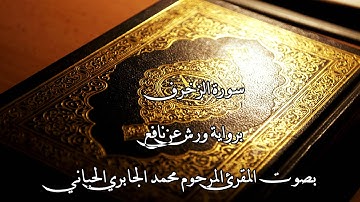 سورة الزخرف
برواية ورش عن نافع
بصوت المقرئ المرحوم محمد الجابري الحياني